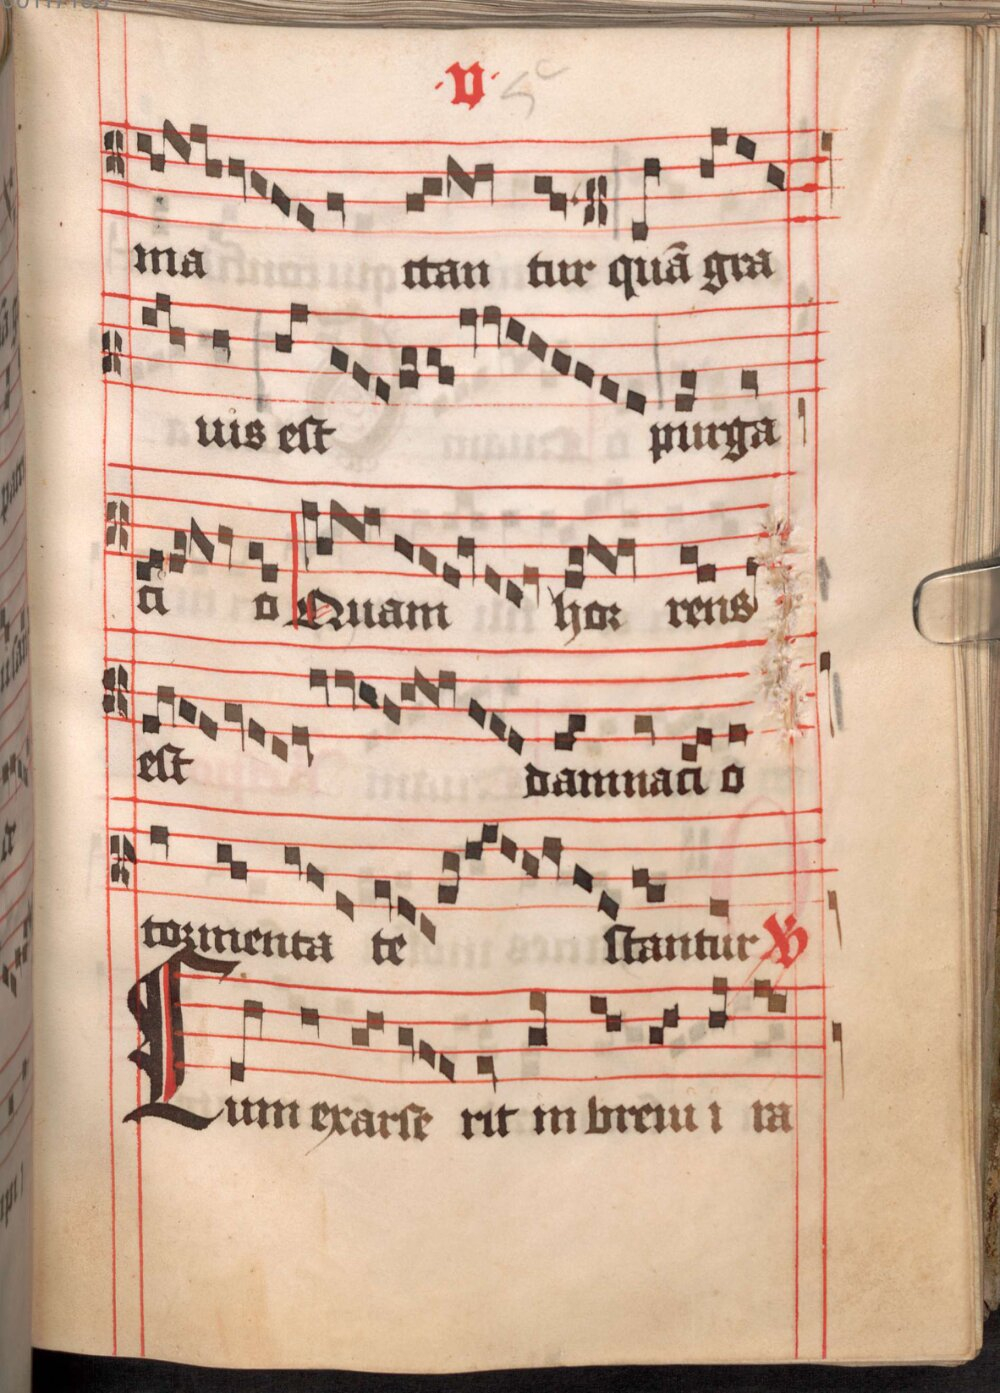 ·v· 5c
ma ctan tur quã gra
uis est purga
ci o Quam hor rens
est damnaci o
tormenta te stantur V
Cum exarse rit in breui i ra